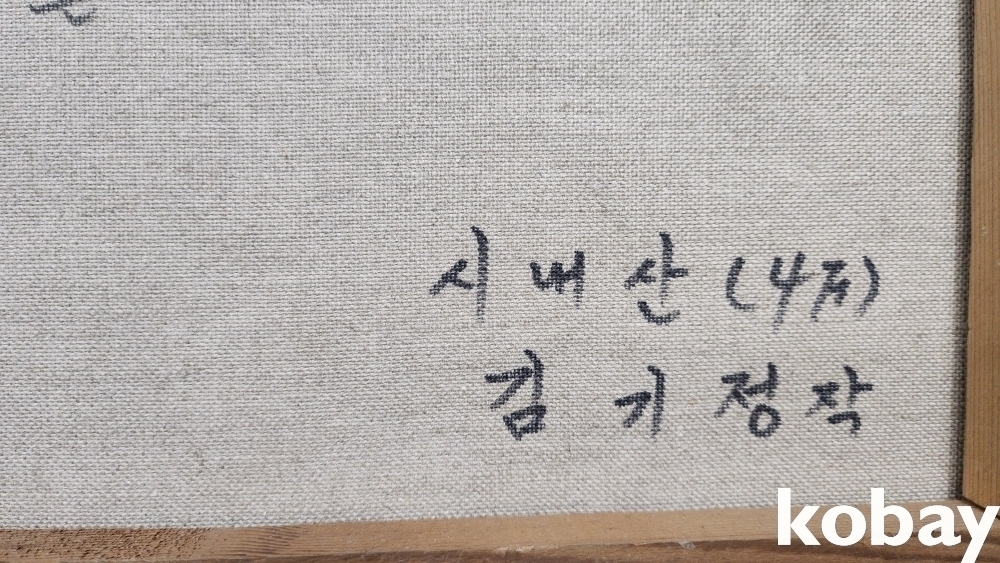 시내산 (4호)
김 기 정 작
kobay